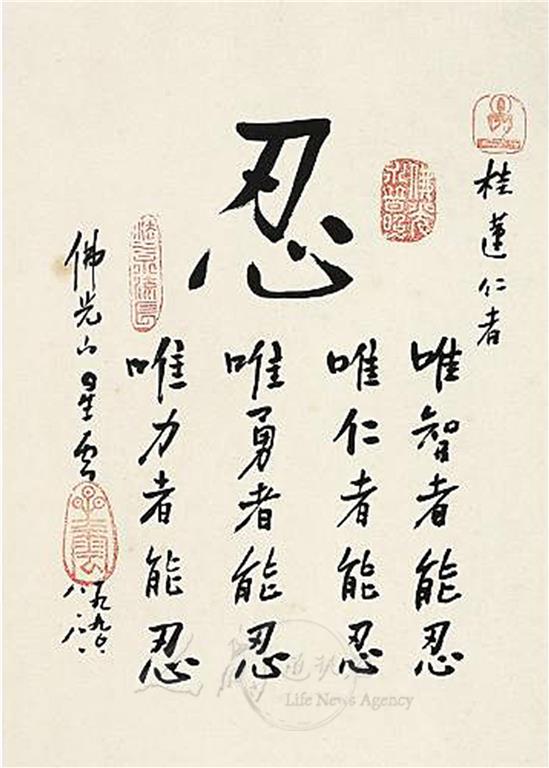 桂蓮仁者
忍
唯智者能忍
唯仁者能忍
唯勇者能忍
唯力者能忍
佛光山星雲
Life News Agency